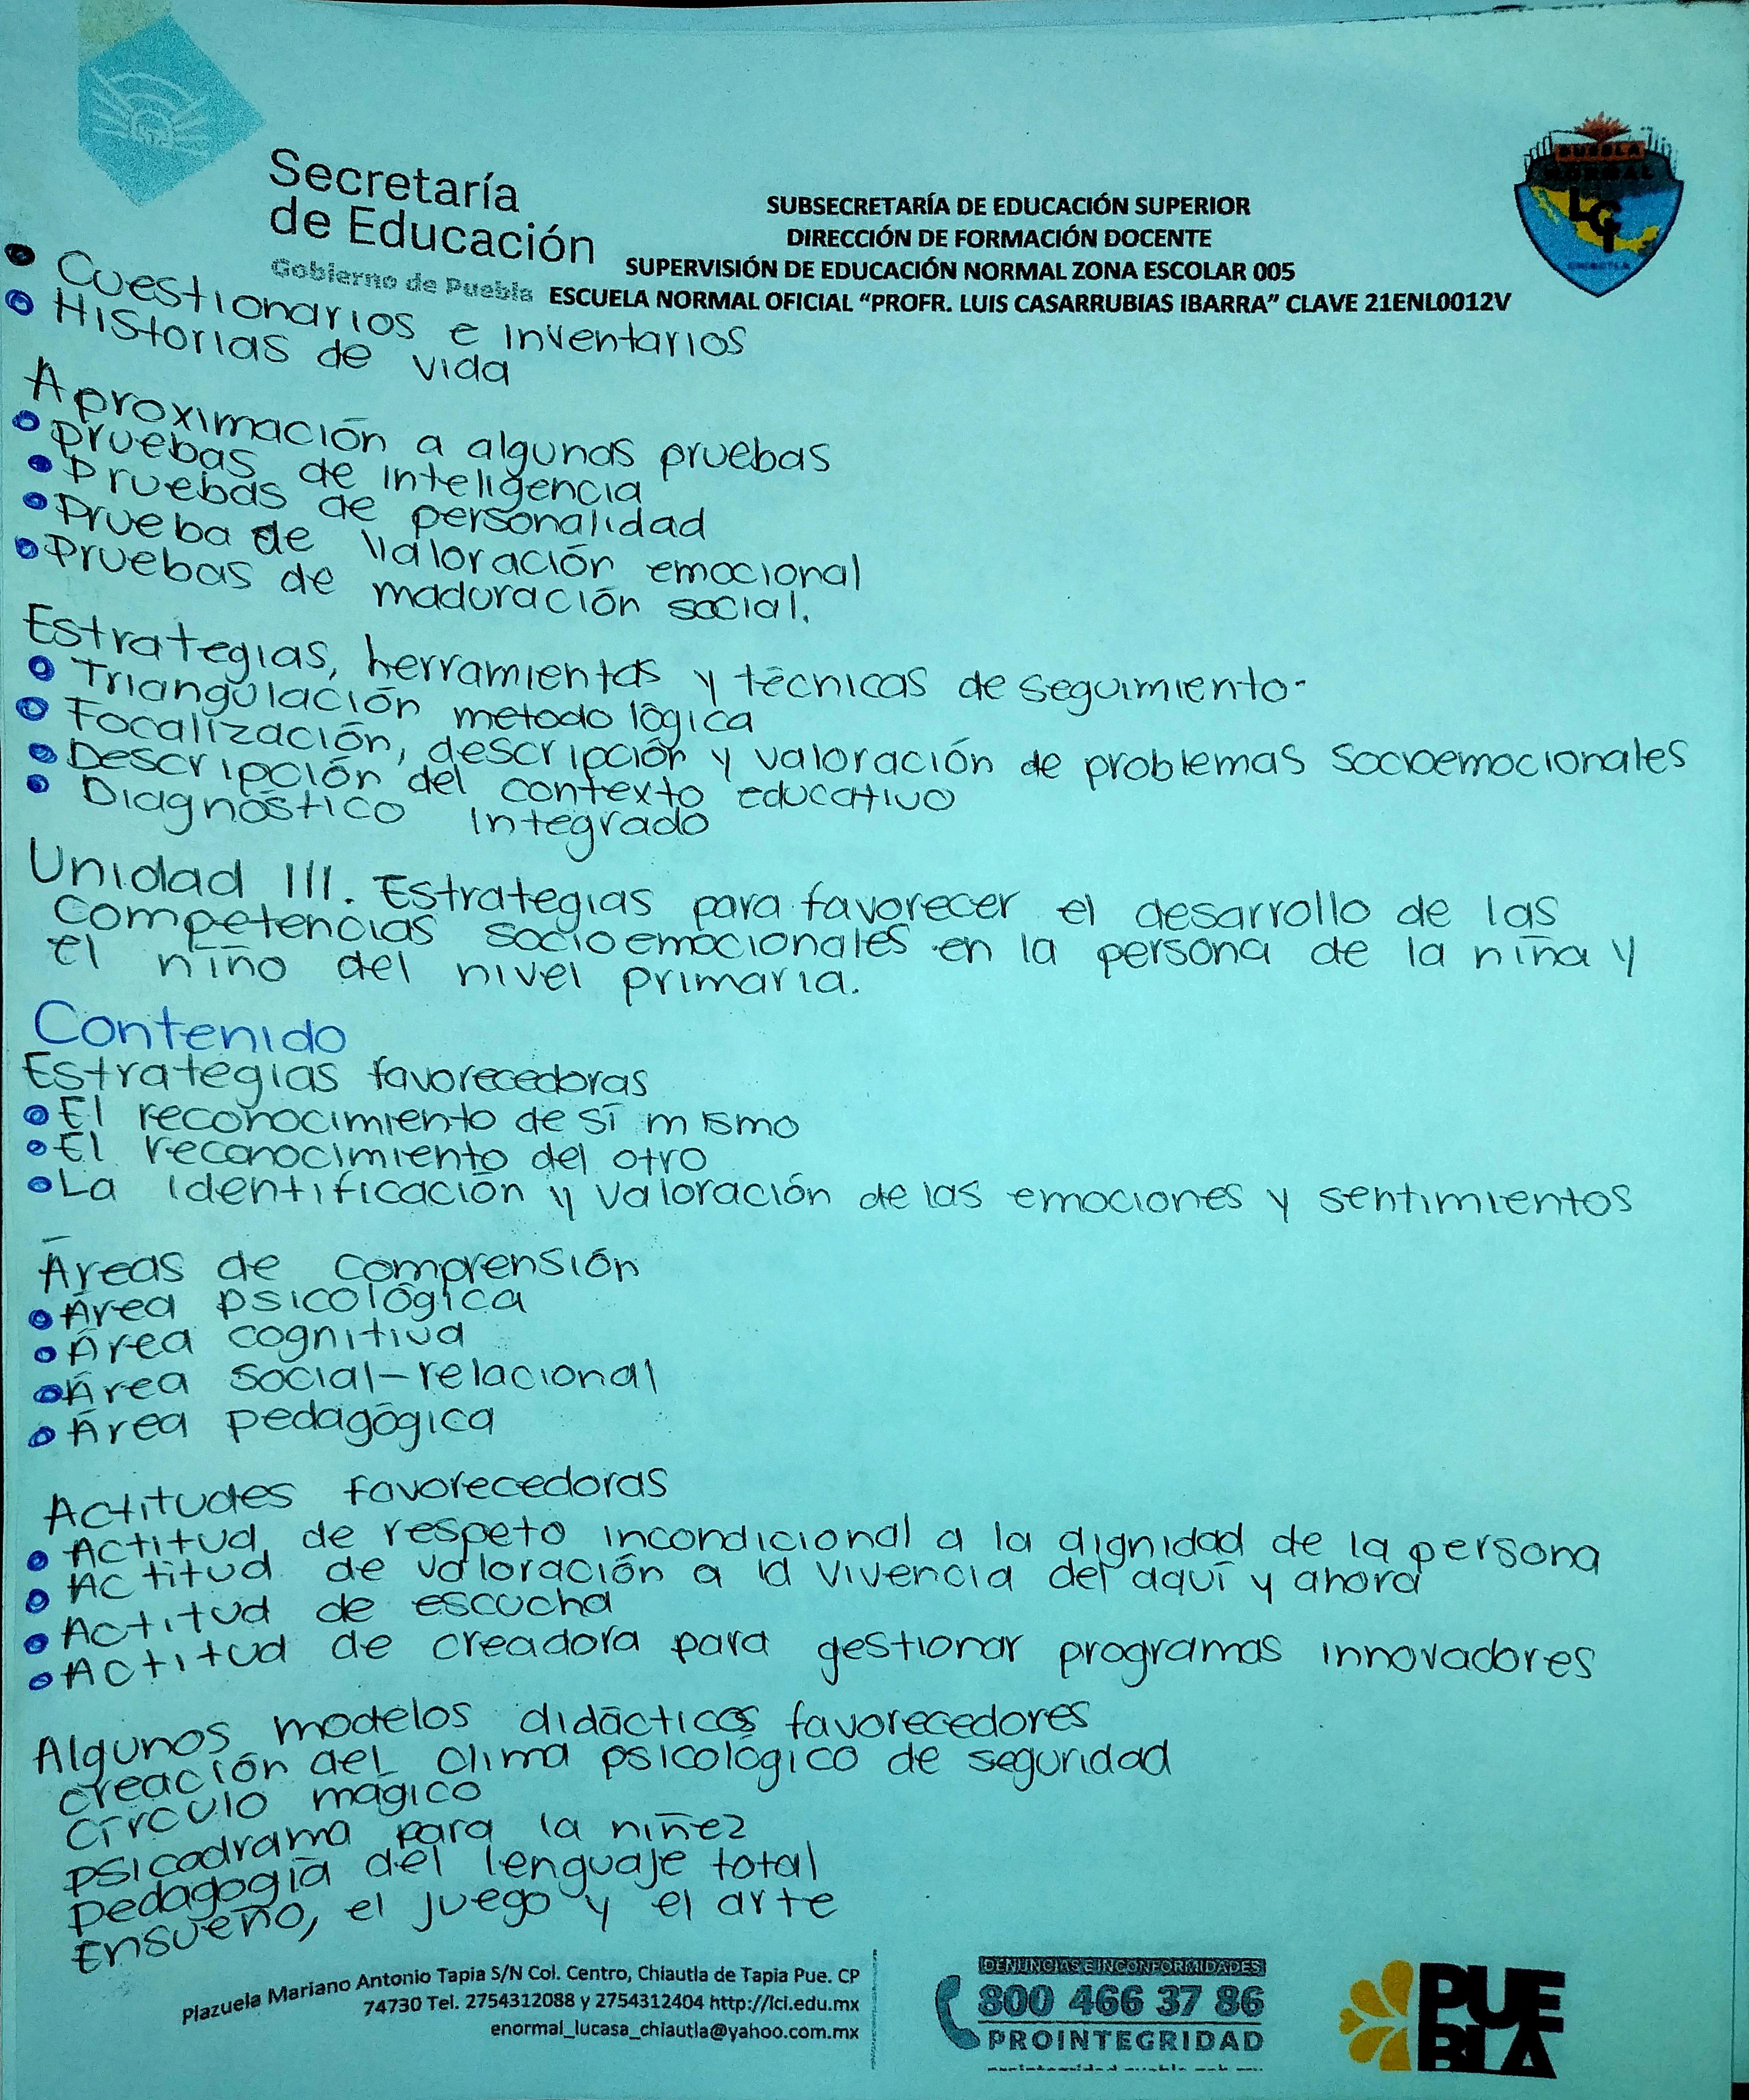 Secretaría
de Educación
Gobierno de Puebla
SUBSECRETARÍA DE EDUCACIÓN SUPERIOR
DIRECCIÓN DE FORMACIÓN DOCENTE
SUPERVISIÓN DE EDUCACIÓN NORMAL ZONA ESCOLAR 005
ESCUELA NORMAL OFICIAL “PROFR. LUIS CASARRUBIAS IBARRA” CLAVE 21ENL0012V
PUEBLA
NORMAL
LCI
• Cuestionarios e inventarios
• Historias de vida
Aproximación a algunas pruebas
• Pruebas de inteligencia
• Pruebas de personalidad
• Prueba de valoración emocional
• Pruebas de maduración social.
Estrategias, herramientas y técnicas de seguimiento-
• Triangulación metodológica
• Focalización, descripción y valoración de problemas socioemocionales
• Descripción del contexto educativo
• Diagnóstico integrado
Unidad III. Estrategias para favorecer el desarrollo de las
competencias socioemocionales en la persona de la niña y
el niño del nivel primaria.
Contenido
Estrategias favorecedoras
• El reconocimiento de sí mismo
• El reconocimiento del otro
• La identificación y valoración de las emociones y sentimientos
Áreas de comprensión
• Área psicológica
• Área cognitiva
• Área social-relacional
• Área pedagógica
Actitudes favorecedoras
• Actitud de respeto incondicional a la dignidad de la persona
• Actitud de valoración a la vivencia del aquí y ahora
• Actitud de escucha
• Actitud de creadora para gestionar programas innovadores
Algunos modelos didácticos favorecedores
creación del clima psicológico de seguridad
Círculo mágico
psicodrama para la niñez
pedagogía del lenguaje total
Ensueño, el juego y el arte
Plazuela Mariano Antonio Tapia S/N Col. Centro, Chiautla de Tapia Pue. CP
74730 Tel. 2754312088 y 2754312404 http://lci.edu.mx
enormal_lucasa_chiautla@yahoo.com.mx
DENUNCIAS E INCONFORMIDADES
800 466 37 86
PROINTEGRIDAD
PUE
BLA